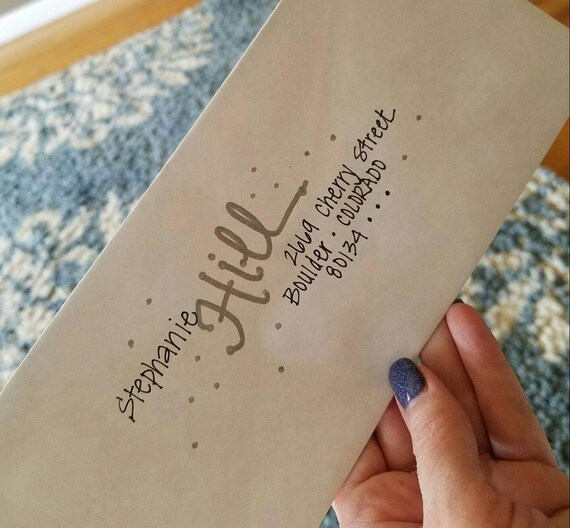 Stephanie
Hill
2669 Cherry Street
Boulder • COLORADO
80134 • • •